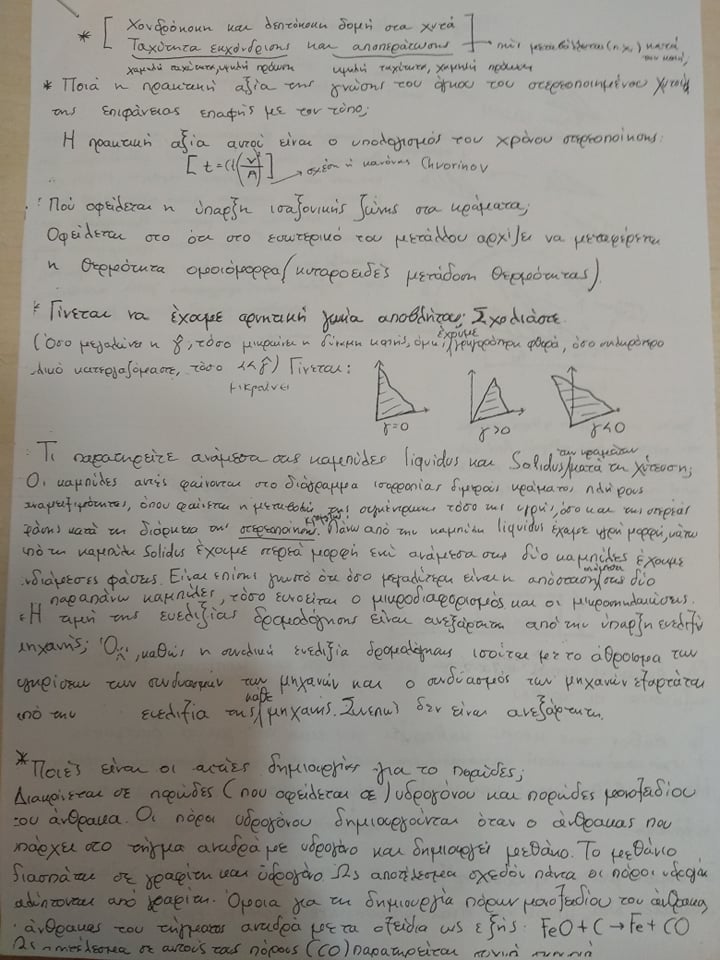 * [ Χονδρόκοκη και λεπτόκοκη δομή στα χυτά
Ταχύτητα εκχόνδρισης και αποπεράτωσης] → πώς μεταβάλλονται (n.x.) κατά
χαμηλή ταχύτητα, υψηλή πρόωση υψηλή ταχύτητα, χαμηλή πρόωση
* Ποιά η πρακτική αξία της γνώσης του όγκου του στερεοποιημένου χυτού
της επιφάνειας επαφής με τον τύπο;
Η πρακτική αξία αυτού είναι ο υπολογισμός του χρόνου στερεοποίησης:
[t=C(V/A)²] → σχέση ή κανόνας Chvorinov
Πού οφείλεται η ύπαρξη ισαξονικής ζώνης στα κράματα;
Οφείλεται στο ότι στο εσωτερικό του μετάλλου αρχίζει να μεταφέρεται
η θερμότητα ομοιόμορφα (κυταροειδές μετάδοση θερμότητας).
* Γίνεται να έχουμε αρνητική γωνία αποβλήτου; Σχολιάστε.
(Όσο μεγαλώνει η γ̂, τόσο μικραίνει η δύναμη κοπής, όμως έχουμε γρηγορότερη φθορά, όσο σκληρότερο
υλικό κατεργαζόμαστε, τόσο <<γ̂) Γίνεται:
μικραίνει
γ=0 γ>0 γ<0
Τι παρατηρείτε ανάμεσα στις καμπύλες liquidus και Solidus των κραμάτων κατά τη χύτευση;
Οι καμπύλες αυτές φαίνονται στο διάγραμμα ισορροπίας διμερούς κράματος πλήρους
αναμειξιμότητας, όπου φαίνεται η μεταβολή της συγκέντρωσης τόσο της υγρής, όσο και της στερεάς
φάσης κατά τη διάρκεια της στερεοποίησης. Πάνω από την καμπύλη liquidus έχουμε υγρή μορφή, κάτω
από τη καμπύλη Solidus έχουμε στερεά μορφή ενώ ανάμεσα στις δύο καμπύλες έχουμε
ενδιάμεσες φάσεις. Είναι επίσης γνωστό ότι όσο μεγαλύτερη είναι η απόσταση ανάμεσα στις δύο
παραπάνω καμπύλες, τόσο ευνοείται ο μικροδιαφορισμός και οι μικροκοιλάνσεις.
Η τιμή της ευελιξίας δρομολόγησης είναι ανεξάρτητη από την ύπαρξη ευέλικτης
μηχανής; Όχι, καθώς η συνολική ευελιξία δρομολόγησης ισούται με το άθροισμα των
των συνδυασμών των μηχανών και ο συνδυασμός των μηχανών εξαρτάται
από την ευελιξία της κάθε μηχανής. Συνεπώς δεν είναι ανεξάρτητη.
* Ποιές είναι οι αιτίες δημιουργίας για το πορώδες;
Διακρίνεται σε πορώδες (που οφείλεται σε) υδρογόνου και πορώδες μονοξειδίου
του άνθρακα. Οι πόροι υδρογόνου δημιουργούνται όταν ο άνθρακας που
υπάρχει στο τήγμα αντιδρά με υδρογόνο και δημιουργεί μεθάνιο. Το μεθάνιο
διασπάται σε γραφίτη και υδρογόνο. Ως αποτέλεσμα σχεδόν πάντα οι πόροι υδρογόνου
καλύπτονται από γραφίτη. Όμοια για τη δημιουργία πόρων μονοξειδίου του άνθρακα,
ο άνθρακας του τήγματος αντιδρά με τα οξείδια ως εξής: FeO + C → Fe + CO
Ως αποτέλεσμα σε αυτούς τους πόρους (CO) παρατηρείται